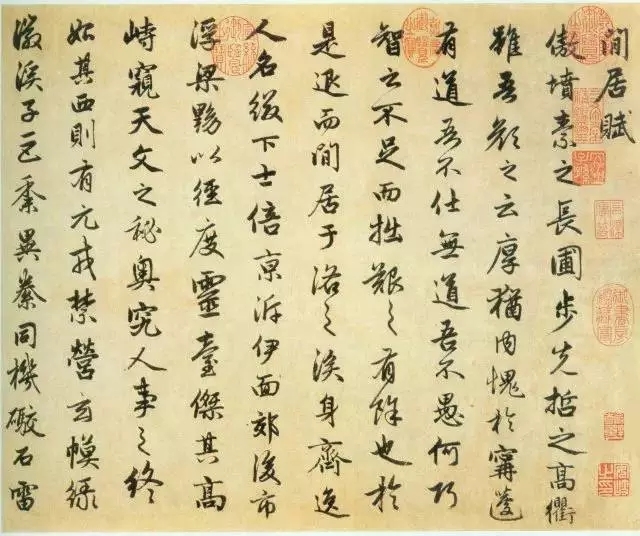 閒居賦
傲墳素之長圃步先哲之高衢
雖吾顏之云厚猶内愧於甯蘧
有道吾不仕無道吾不愚何巧
智之不足而拙艱之有餘也於
是退而閒居于洛之涘身齊逸
人名綴下士倍京泝伊面郊後市
浮梁黝以徑度靈臺傑其高
峙窺天文之秘奧究人事之終
始其西則有元戎禁營玄幙綠
徽溪子巨黍異絭同機礮石雷